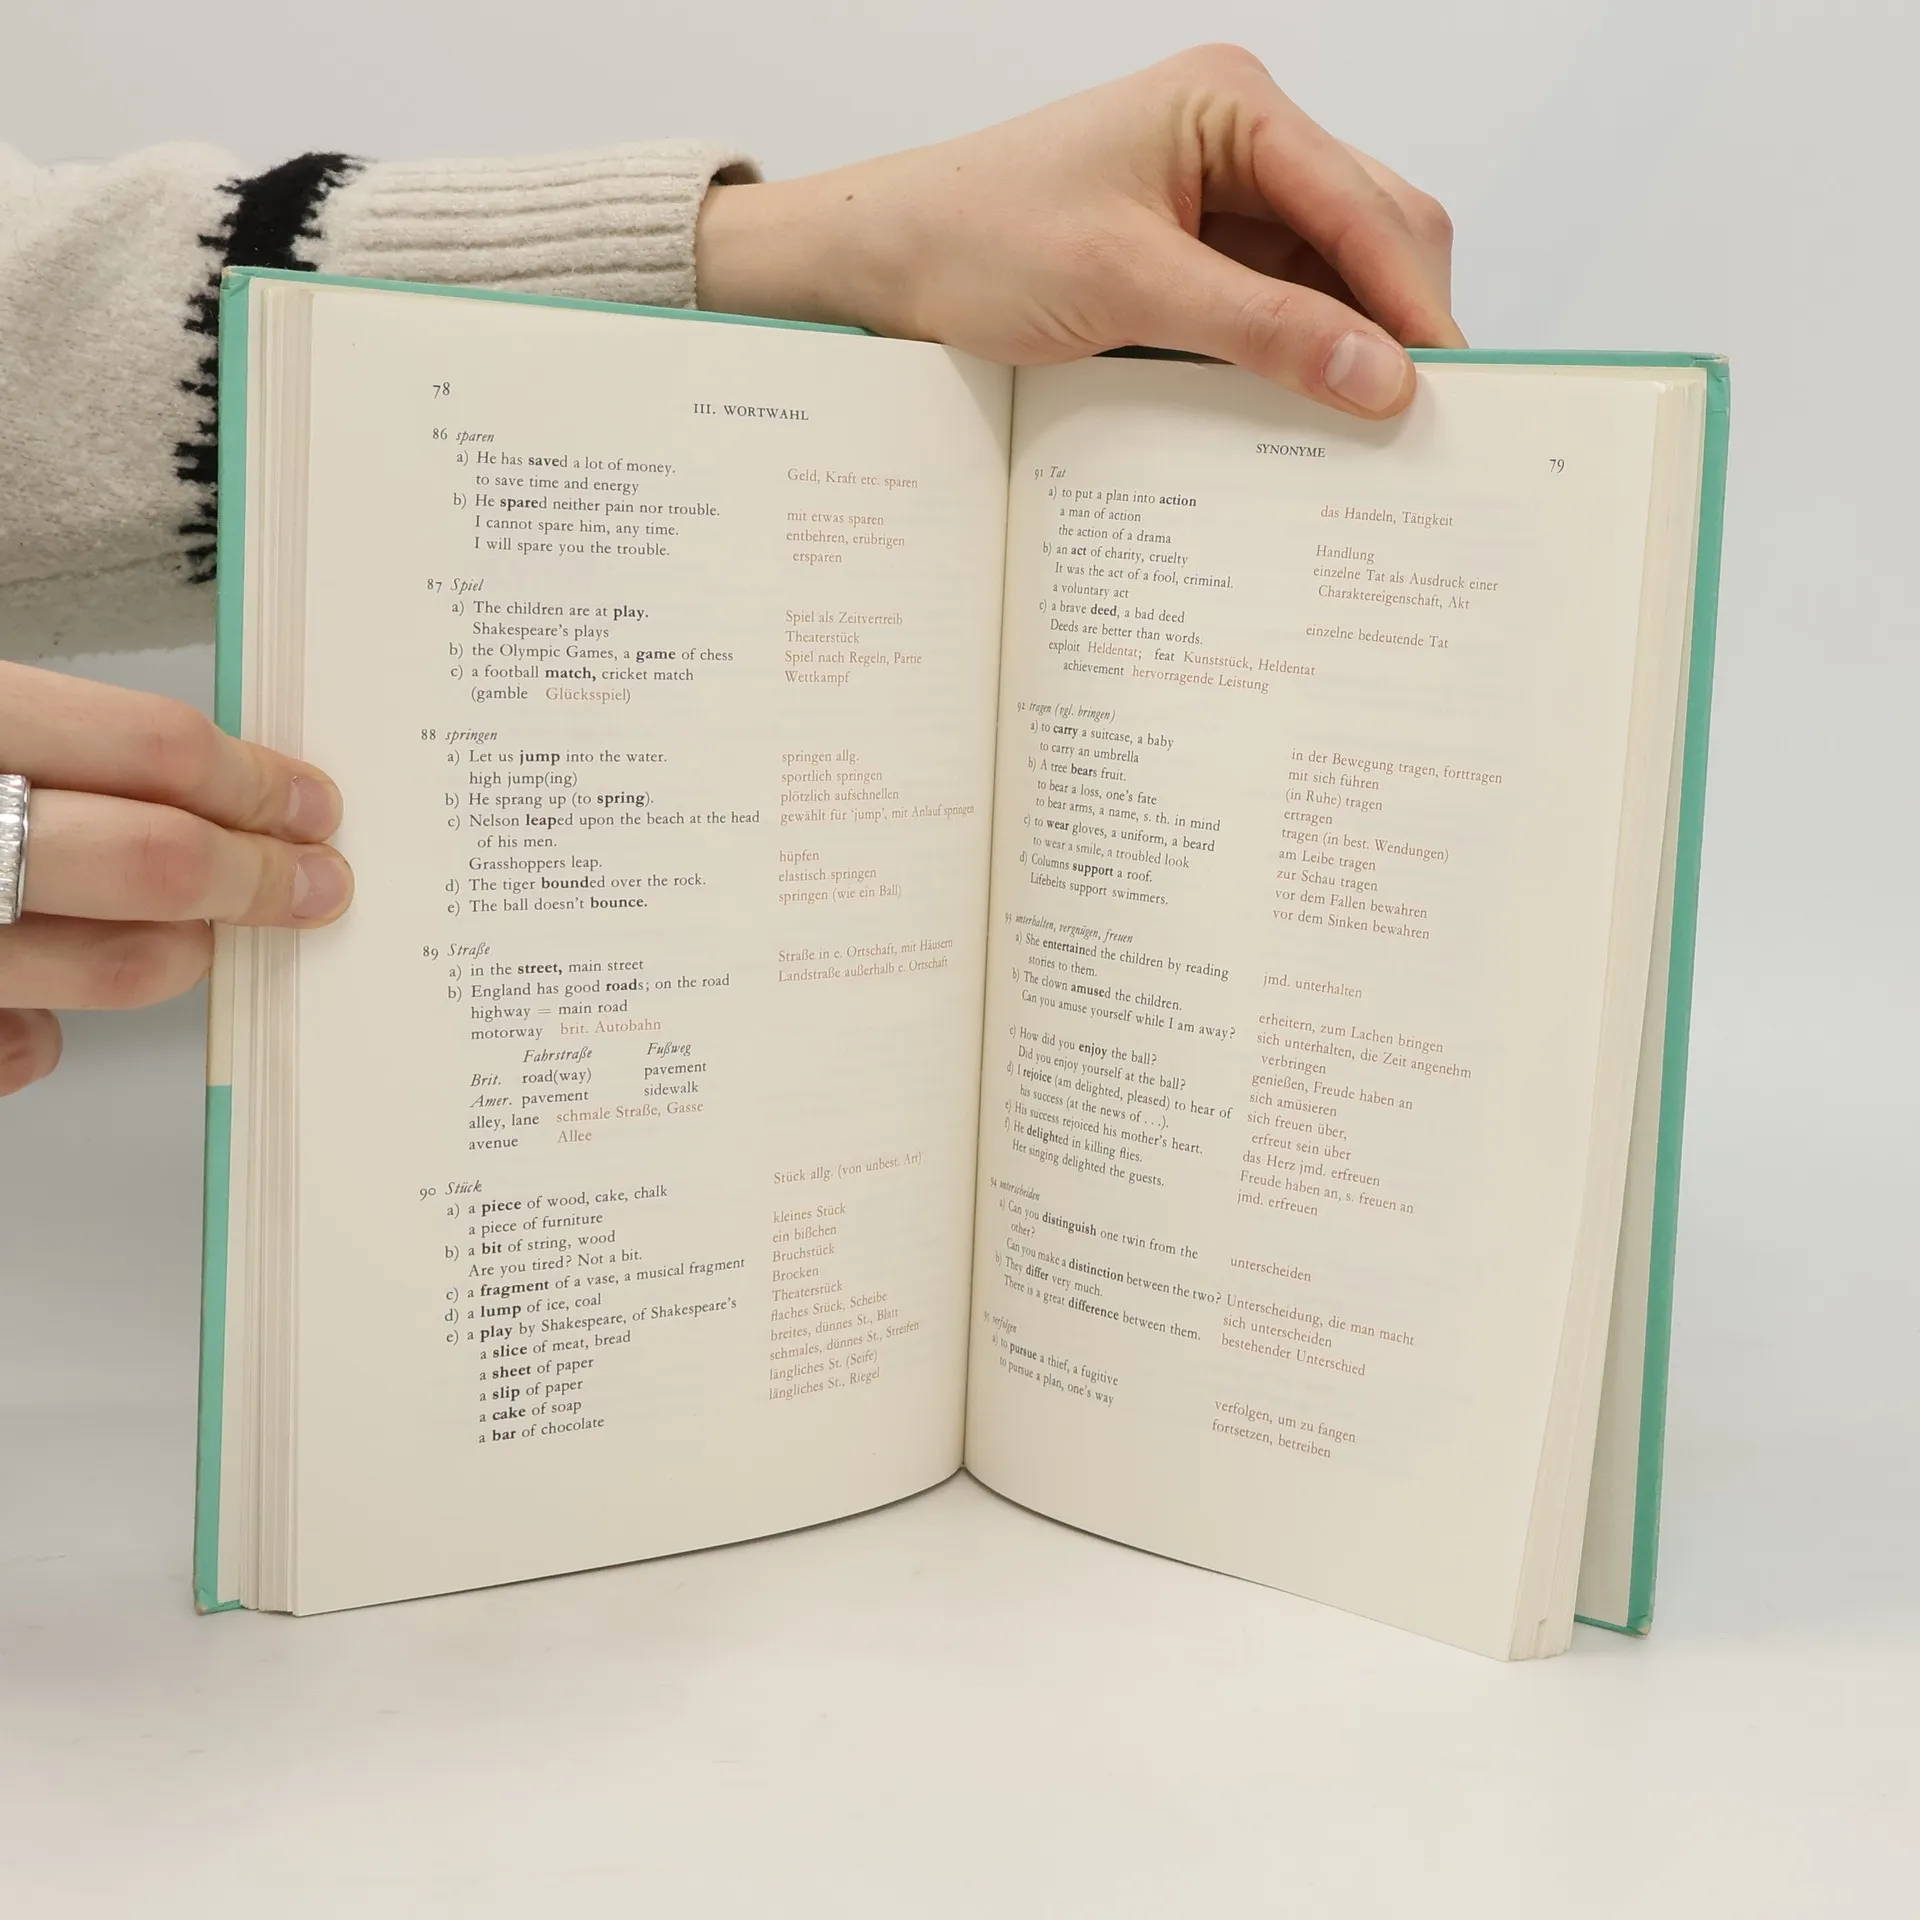 78
III. WORTWAHL
86 sparen
a) He has saved a lot of money. Geld, Kraft etc. sparen
to save time and energy
b) He spared neither pain nor trouble. mit etwas sparen
I cannot spare him, any time. entbehren, erübrigen
I will spare you the trouble. ersparen
87 Spiel
a) The children are at play. Spiel als Zeitvertreib
Shakespeare's plays Theaterstück
b) the Olympic Games, a game of chess Spiel nach Regeln, Partie
c) a football match, cricket match Wettkampf
(gamble Glücksspiel)
88 springen
a) Let us jump into the water. springen allg.
high jump(ing) sportlich springen
b) He sprang up (to spring). plötzlich aufschnellen
c) Nelson leaped upon the beach at the head gewählt für 'jump', mit Anlauf springen
of his men.
Grasshoppers leap. hüpfen
d) The tiger bounded over the rock. elastisch springen
e) The ball doesn't bounce. springen (wie ein Ball)
89 Straße
a) in the street, main street Straße in e. Ortschaft, mit Häusern
b) England has good roads; on the road Landstraße außerhalb e. Ortschaft
highway = main road
motorway brit. Autobahn
Fahrstraße Fußweg
Brit. road(way) pavement
Amer. pavement sidewalk
alley, lane schmale Straße, Gasse
avenue Allee
90 Stück
a) a piece of wood, cake, chalk Stück allg. (von unbest. Art)
a piece of furniture
b) a bit of string, wood kleines Stück
Are you tired? Not a bit. ein bißchen
c) a fragment of a vase, a musical fragment Bruchstück
d) a lump of ice, coal Brocken
e) a play by Shakespeare, of Shakespeare's Theaterstück
a slice of meat, bread flaches Stück, Scheibe
a sheet of paper breites, dünnes St., Blatt
a slip of paper schmales, dünnes St., Streifen
a cake of soap längliches St. (Seife)
a bar of chocolate längliches St., Riegel
SYNONYME
79
91 Tat
a) to put a plan into action das Handeln, Tätigkeit
a man of action
the action of a drama Handlung
b) an act of charity, cruelty einzelne Tat als Ausdruck einer
It was the act of a fool, criminal. Charaktereigenschaft, Akt
a voluntary act
c) a brave deed, a bad deed einzelne bedeutende Tat
Deeds are better than words.
exploit Heldentat; feat Kunststück, Heldentat
achievement hervorragende Leistung
92 tragen (vgl. bringen)
a) to carry a suitcase, a baby in der Bewegung tragen, forttragen
to carry an umbrella mit sich führen
b) A tree bears fruit. (in Ruhe) tragen
to bear a loss, one's fate ertragen
to bear arms, a name, s. th. in mind tragen (in best. Wendungen)
c) to wear gloves, a uniform, a beard am Leibe tragen
to wear a smile, a troubled look zur Schau tragen
d) Columns support a roof. vor dem Fallen bewahren
Lifebelts support swimmers. vor dem Sinken bewahren
93 unterhalten, vergnügen, freuen
a) She entertained the children by reading jmd. unterhalten
stories to them.
b) The clown amused the children. erheitern, zum Lachen bringen
Can you amuse yourself while I am away? sich unterhalten, die Zeit angenehm
verbringen
c) How did you enjoy the ball? genießen, Freude haben an
Did you enjoy yourself at the ball? sich amüsieren
d) I rejoice (am delighted, pleased) to hear of sich freuen über,
his success (at the news of . . .). erfreut sein über
e) His success rejoiced his mother's heart. das Herz jmd. erfreuen
f) He delighted in killing flies. Freude haben an, s. freuen an
Her singing delighted the guests. jmd. erfreuen
94 unterscheiden
a) Can you distinguish one twin from the unterscheiden
other?
Can you make a distinction between the two? Unterscheidung, die man macht
b) They differ very much. sich unterscheiden
There is a great difference between them. bestehender Unterschied
95 verfolgen
a) to pursue a thief, a fugitive verfolgen, um zu fangen
to pursue a plan, one's way fortsetzen, betreiben